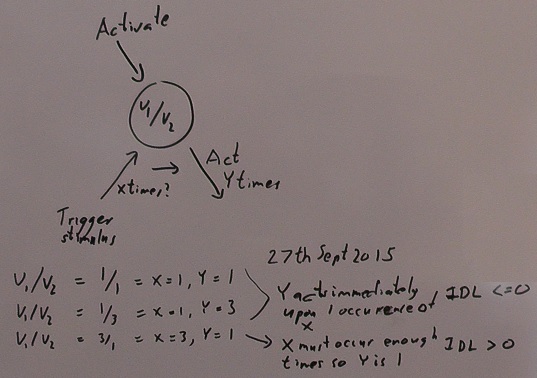 Activate
V1/V2
Act
Y times
x times?
Trigger
stimulus
27th Sept 2015
V1/V2 = 1/1 = X=1, Y=1
V1/V2 = 1/3 = X=1, Y=3
V1/V2 = 3/1 = X=3, Y=1
Y acts immediately
upon 1 occurence of
X
IDL <=0
X must occur enough
times so Y is 1
IDL >0